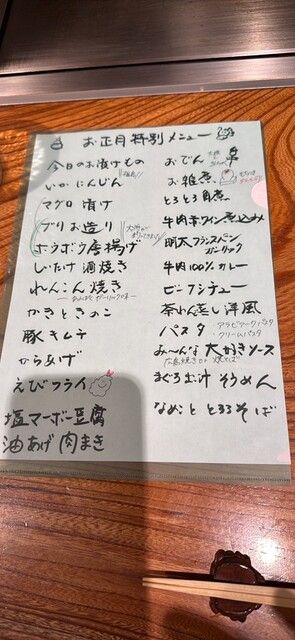 お正月特別メニュー
今日のお漬けもの
いか にんじん
マグロ 漬け
ブリお造り
ホウボウ唐揚げ
しいたけ 酒焼き
れんこん 焼き
かきときのこ
豚キムチ
からあげ
えびフライ
塩マーボー豆腐
油あげ 肉まき
おでん
お雑煮
とろとろ角煮
牛肉赤ワイン煮込み
明太フランスパン
ガーリック
牛肉100%カレー
ビーフシチュー
茶わん蒸し 洋風
パスタ
アラビアータパスタ
クリームパスタ
み〜んな 大好きソース
広島焼き or 焼そば
まぐろ出汁 そうめん
なめこと とろろそば